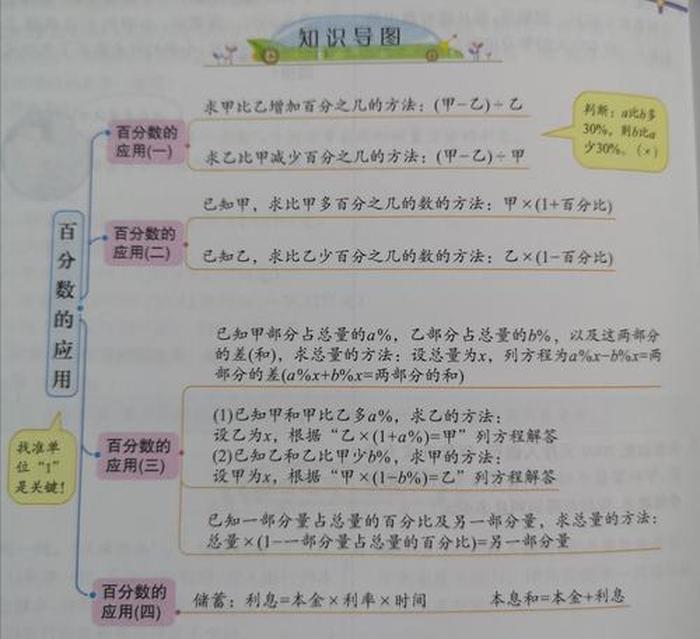 知识导图
求甲比乙增加百分之几的方法：(甲-乙)÷乙
百分数的
应用(一)
求乙比甲减少百分之几的方法：(甲-乙)÷甲
判断：a比b多
30%，则b比a
少30%。(×)
已知甲，求比甲多百分之几的数的方法：甲×(1+百分比)
百分数的
应用(二)
已知乙，求比乙少百分之几的数的方法：乙×(1-百分比)
百分数的应用
已知甲部分占总量的a%，乙部分占总量的b%，以及这两部分
的差(和)，求总量的方法：设总量为x，列方程为a%x-b%x=两
部分的差(a%x+b%x=两部分的和)
找准单
位“1”
是关键！
百分数的
应用(三)
(1)已知甲和甲比乙多a%，求乙的方法：
设乙为x，根据“乙×(1+a%)=甲”列方程解答
(2)已知乙和乙比甲少b%，求甲的方法：
设甲为x，根据“甲×(1-b%)=乙”列方程解答
已知一部分量占总量的百分比及另一部分量，求总量的方法：
总量×(1-一部分量占总量的百分比)=另一部分量
百分数的
应用(四)
储蓄：利息=本金×利率×时间 本息和=本金+利息